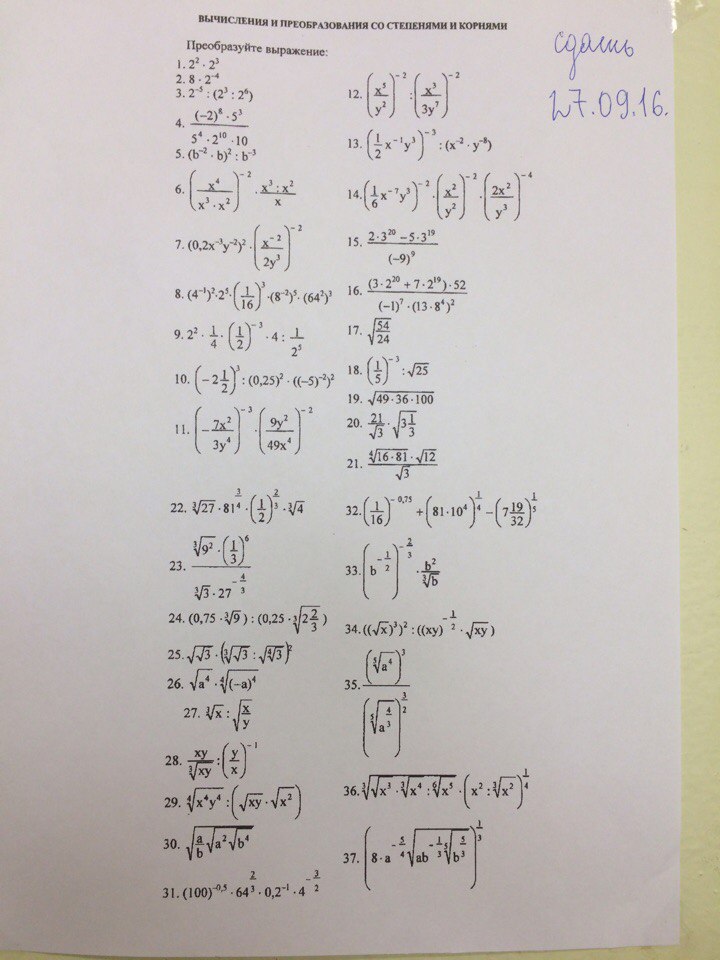 ВЫЧИСЛЕНИЯ И ПРЕОБРАЗОВАНИЯ СО СТЕПЕНЯМИ И КОРНЯМИ
сдать
27.09.16.
Преобразуйте выражение:
1. 2² · 2³
2. 8 · 2⁻⁴
3. 2⁻⁵ : (2³ : 2⁶)
4. ((-2)⁸ · 5³)/(5⁴ · 2¹⁰ · 10)
5. (b⁻² · b)² : b⁻³
6. (x⁴/(x³ · x²))⁻² · (x³ : x²)/x
7. (0,2x⁻³y⁻²)² · (x⁻²/(2y³))⁻²
8. (4⁻¹)²·2⁵·(1/16)³·(8⁻²)⁵·(64²)³
9. 2² · 1/4 · (1/2)⁻³ · 4 : 1/2⁵
10. (-2 1/2)³ : (0,25)² · ((-5)⁻²)²
11. (-7x²/(3y⁴))⁻³ · (9y²/(49x⁴))⁻²
12. (x⁵/y²)⁻² : (x³/(3y⁷))⁻²
13. (1/2 x⁻¹y³)⁻³ : (x⁻² · y⁻⁸)
14. (1/6 x⁻⁷y³)⁻² · (x²/y²)⁻² · (2x²/y³)⁻⁴
15. (2·3²⁰ – 5·3¹⁹)/(-9)⁹
16. ((3·2²⁰ + 7·2¹⁹)·52)/((-1)⁷ · (13·8⁴)²)
17. √(54/24)
18. (1/5)⁻³ : √25
19. √(49·36·100)
20. 21/√3 · √(3 1/3)
21. (⁴√(16·81) · √12)/√3
22. ³√27 · 81^(3/4) · (1/2)^(2/3) · ³√4
23. (³√(9²) · (1/3)⁶)/(³√3 · 27^(-4/3))
24. (0,75 · ³√9) : (0,25 · ³√(2 2/3))
25. √√3 · (³√√3 : √(⁴√3))²
26. √(a⁴) · ⁴√((-a)⁴)
27. ³√x : √(x/y)
28. xy/³√(xy) : (y/x)⁻¹
29. ⁴√(x⁴y⁴) : (√(xy) · √(x²))
30. √(a/b √(a²√(b⁴)))
31. (100)^(-0,5) · 64^(2/3) · 0,2⁻¹ · 4^(-3/2)
32. (1/16)^(-0,75) + (81·10⁴)^(1/4) – (7 19/32)^(1/5)
33. (b^(-1/2))^(-2/3) · b²/³√b
34. ((√x)³)² : ((xy)^(-1/2) · √(xy))
35. (⁵√(a⁴))³/(⁵√(a^(4/3)))^(3/2)
36. ³√(√(x³) · ³√(x⁴) : ⁶√(x⁵)) · (x² : ³√(x²))^(1/4)
37. (8 · a^(-5/4) √(ab^(-1/3) ⁵√(b^(5/3))))^(1/3)